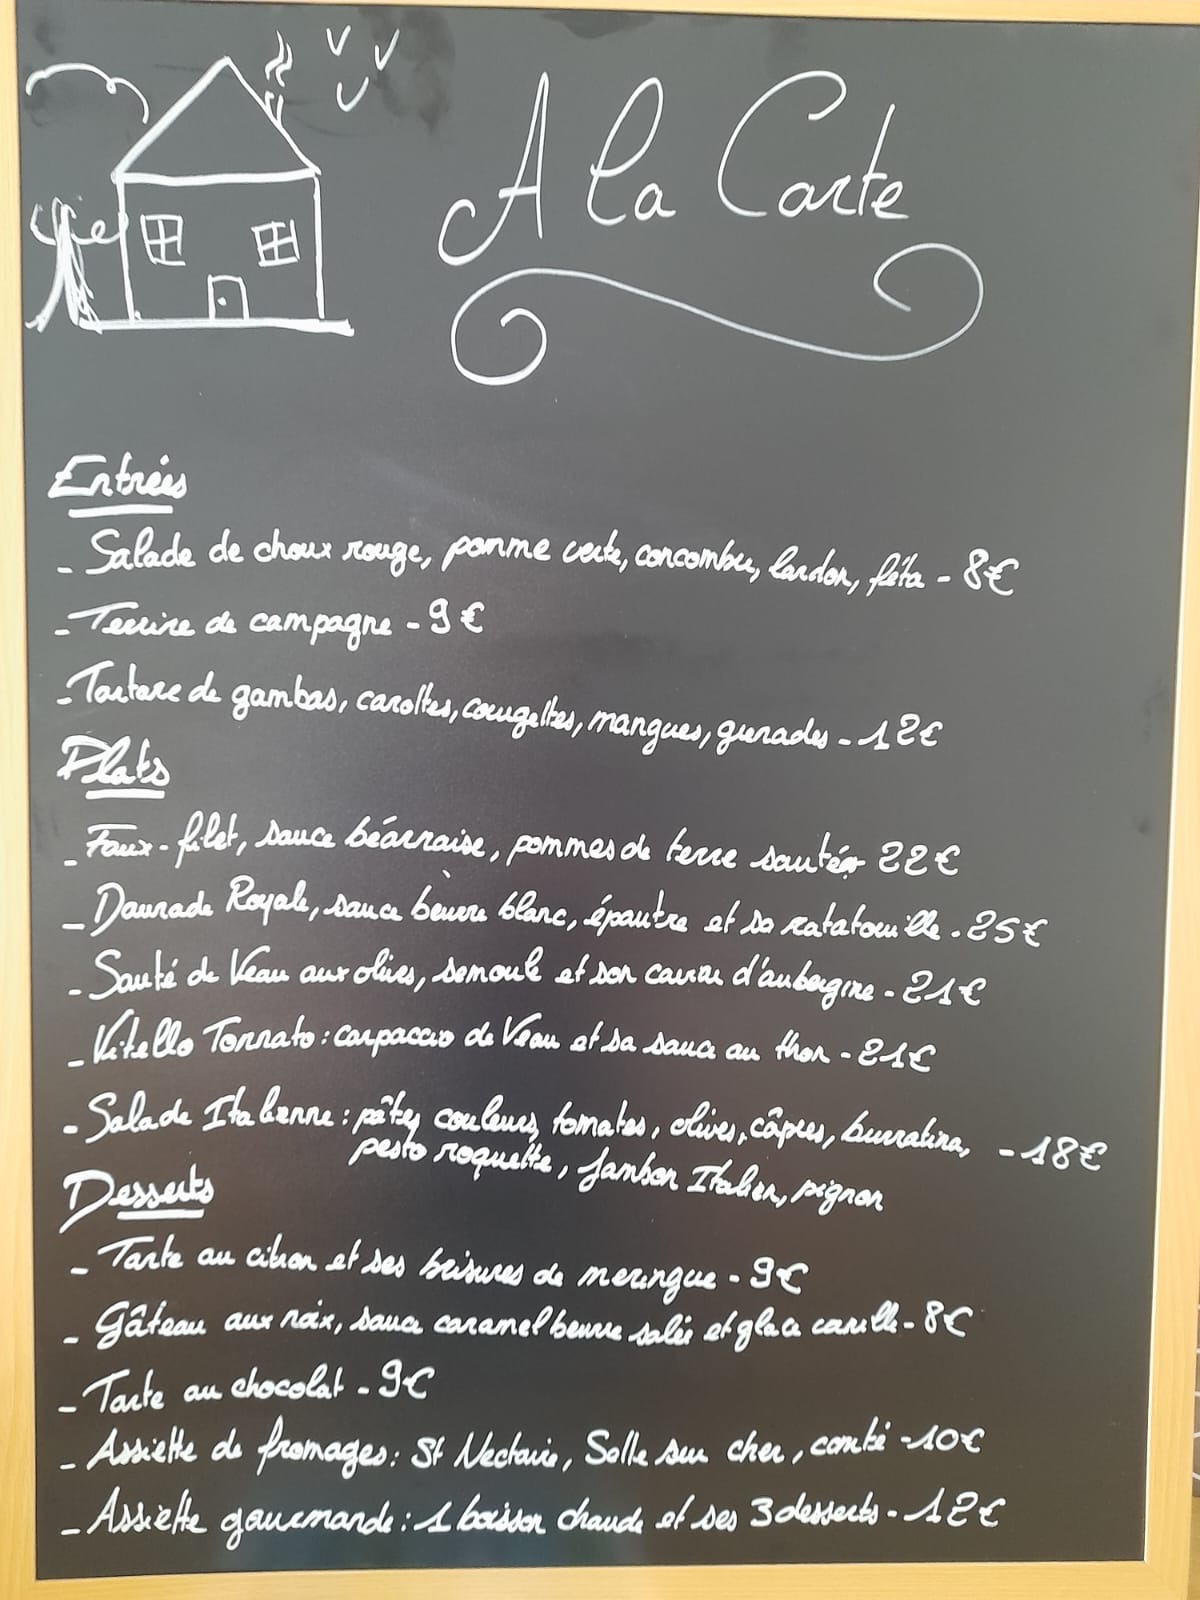 A la Carte
Entrées
- Salade de choux rouge, pomme verte, concombre, lardon, féta - 8€
- Terrine de campagne - 9€
- Tartare de gambas, carottes, courgettes, mangues, grenades - 12€
Plats
- Faux-filet, sauce béarnaise, pommes de terre sautées 22€
- Daurade Royale, sauce beurre blanc, épautre et sa ratatouille - 25€
- Sauté de Veau aux olives, semoule et son caviar d'aubergine - 21€
- Vitello Tonnato : carpaccio de Veau et sa sauce au thon - 21€
- Salade Italienne : pâtes couleurs, tomates, olives, câpres, burratina, - 18€
pesto roquette, Jambon Italien, pignon
Desserts
- Tarte au citron et ses brisures de meringue - 9€
- Gâteau aux noix, sauce caramel beurre salée et glace vanille - 8€
- Tarte au chocolat - 9€
- Assiette de fromages : St Nectaire, Selle sur cher, comté - 10€
- Assiette gourmande : 1 boisson chaude et ses 3 desserts - 12€